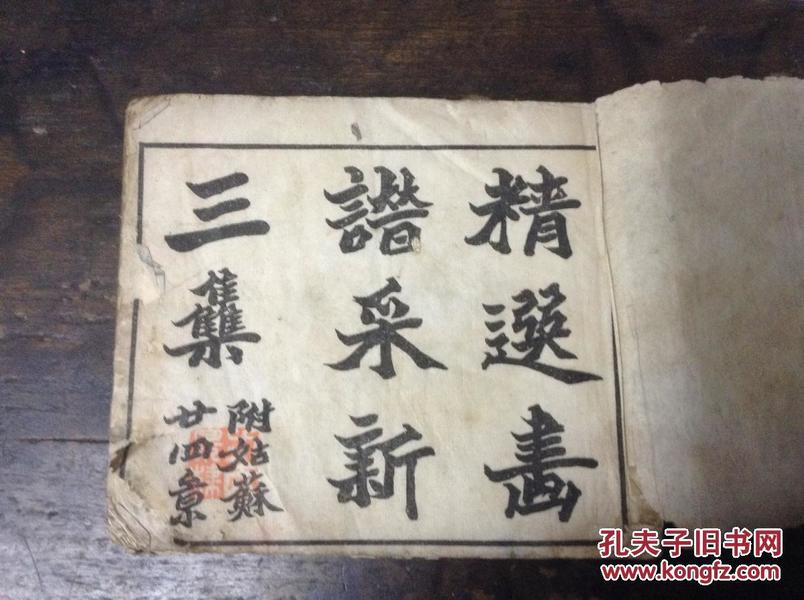 精選畵
譜采新
三雧
附姑蘇
廿四景
孔夫子旧书网
www.kongfz.com